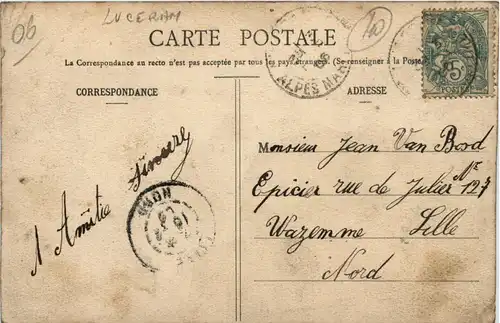 06
LUCERAM
10
CARTE POSTALE
La Correspondance au recto n'est pas acceptée par tous les pays étrangers. (Se renseigner à la Poste)
CORRESPONDANCE
ADRESSE
ALPES MAR
5
POSTES
NORD
Amitié sincère
Monsieur Jean Van
Epicier rue de Juliers Nº 127
Wazemme Lille
Nord